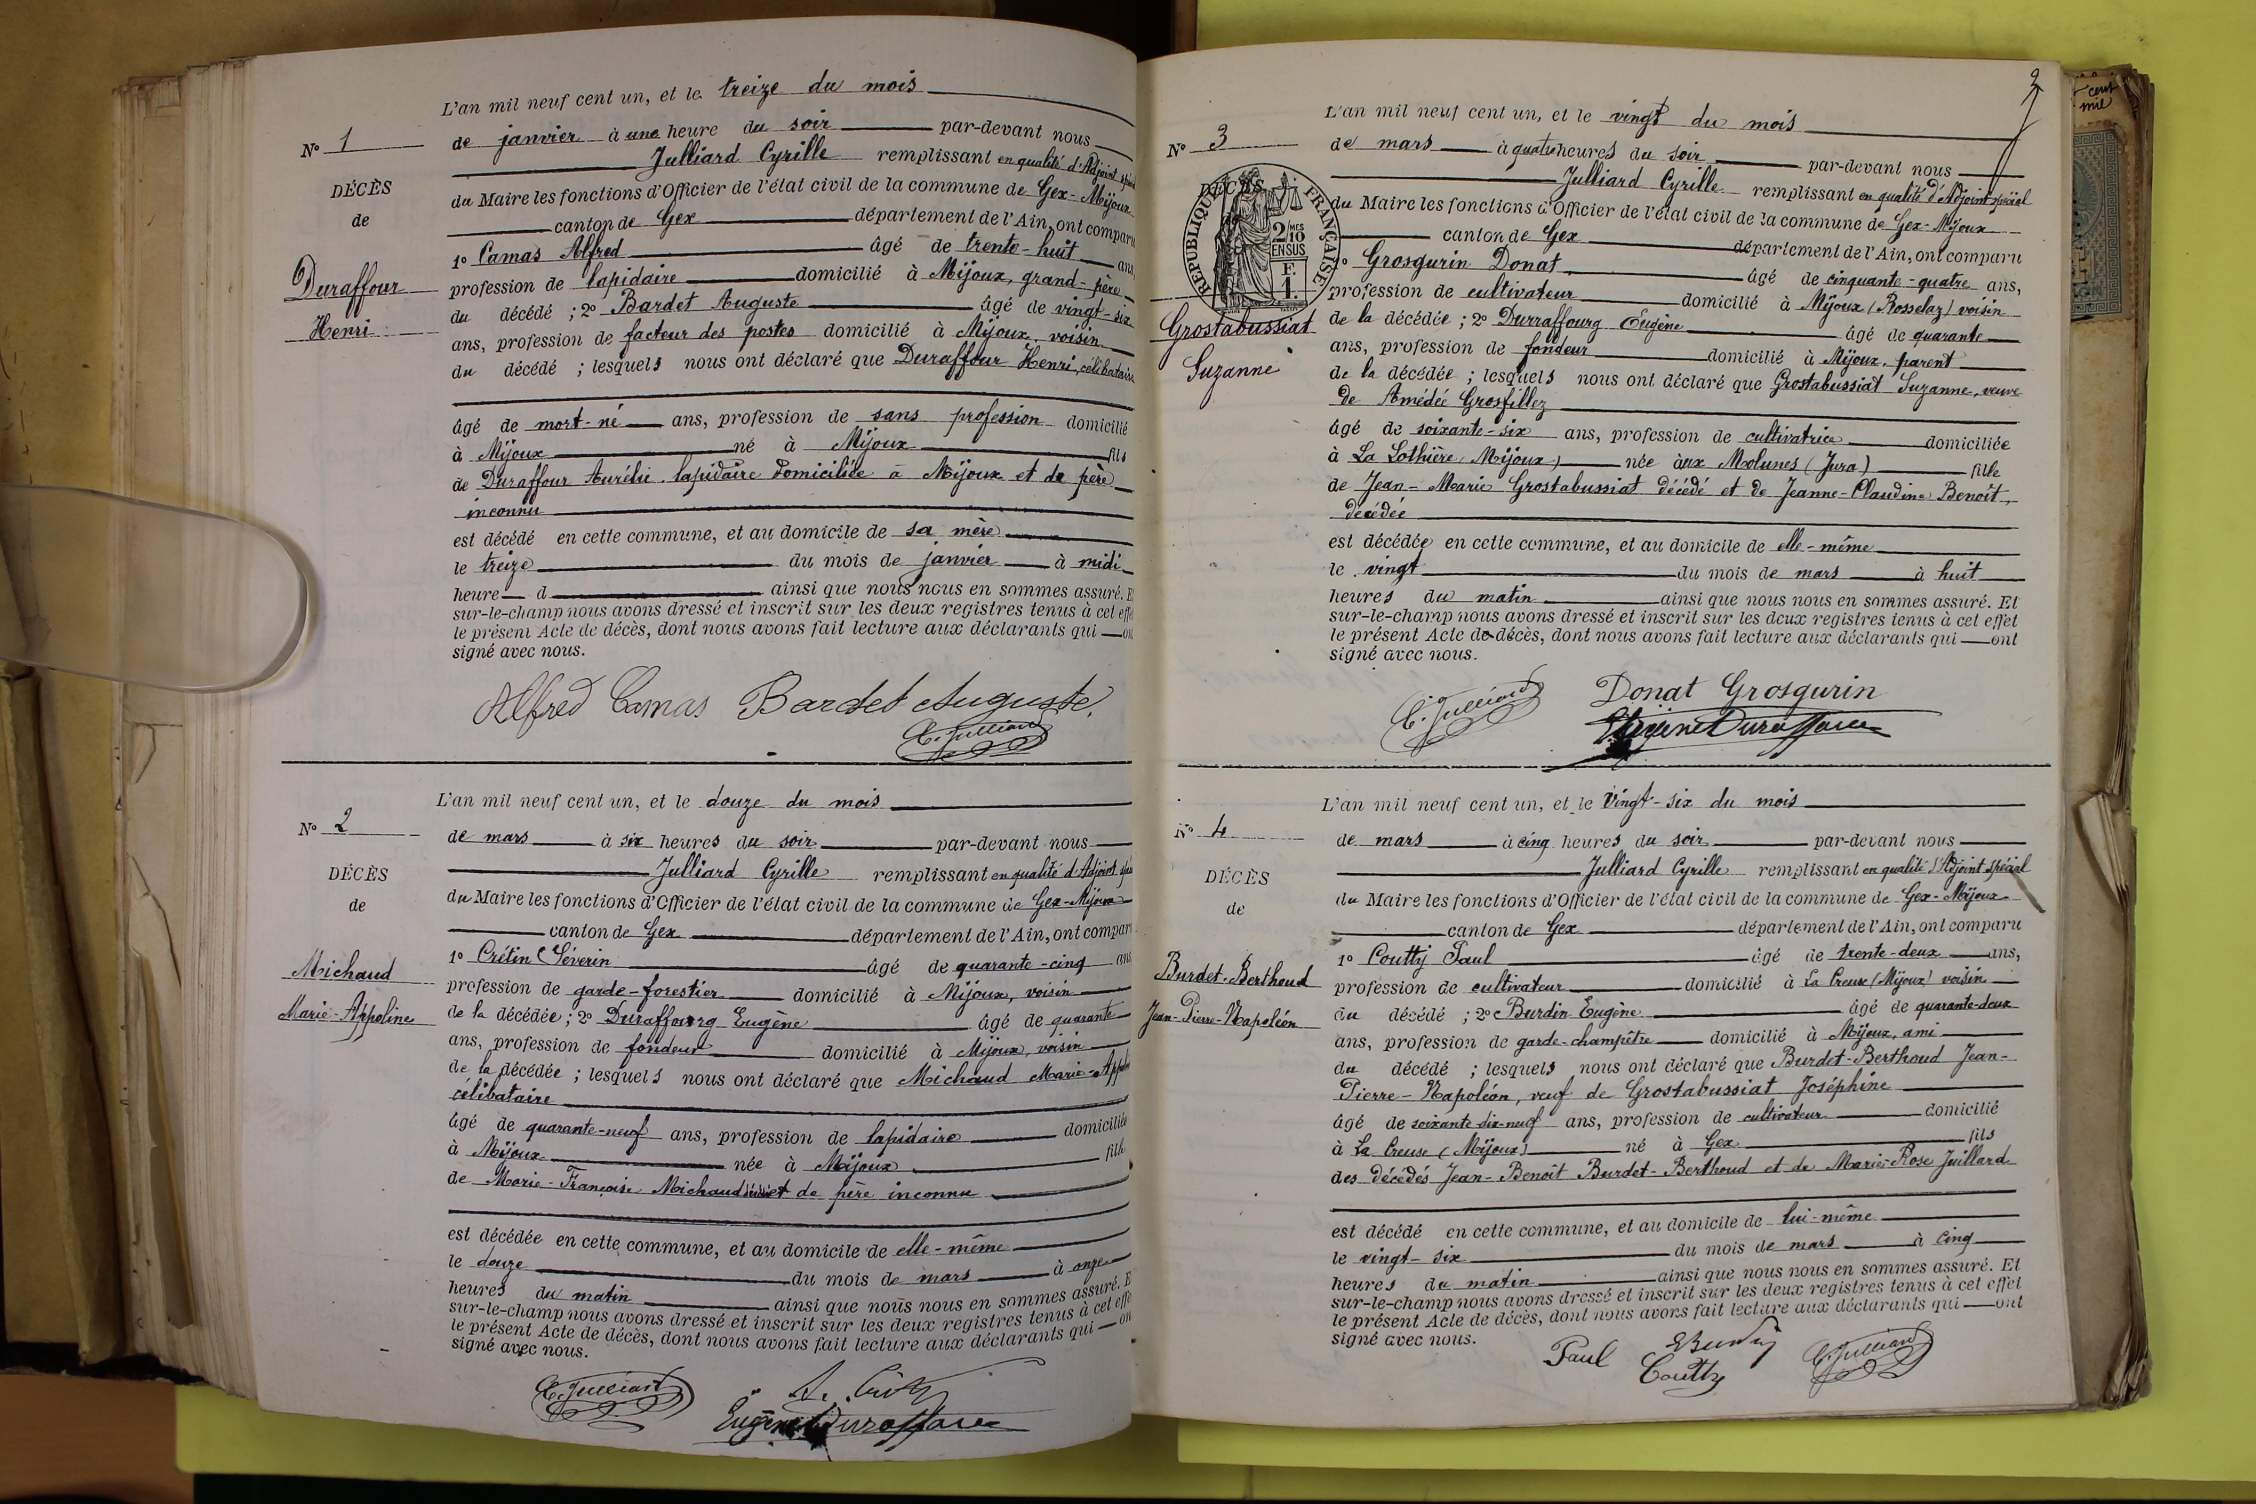 L'an mil neuf cent un, et le treize du mois
N° 1
de janvier à une heure du soir par-devant nous
Julliard Cyrille remplissant en qualité d'Adjoint
DÉCÈS
du Maire les fonctions d'Officier de l'état civil de la commune de Gex-Mijoux
de
canton de Gex département de l'Ain, ont comparu
1° Camas Alfred âgé de trente-huit ans
Duraffour
profession de lapidaire domicilié à Mijoux, grand-père
du décédé ; 2° Bardet Auguste âgé de vingt-six
Henri
ans, profession de facteur des postes domicilié à Mijoux, voisin
du décédé ; lesquels nous ont déclaré que Duraffour Henri, célibataire
âgé de mort-né ans, profession de sans profession domicilié
à Mijoux né à Mijoux fils
de Duraffour Aurélie lapidaire domiciliée à Mijoux et de père
inconnu
est décédé en cette commune, et au domicile de sa mère
le treize du mois de janvier à midi
heure d ainsi que nous nous en sommes assuré. E
sur-le-champ nous avons dressé et inscrit sur les deux registres tenus à cet effe
le présent Acte de décès, dont nous avons fait lecture aux déclarants qui on
signé avec nous.
Alfred Camas Bardet Auguste
C. Julliard
L'an mil neuf cent un, et le douze du mois
N° 2
de mars à six heures du soir par-devant nous
Julliard Cyrille remplissant en qualité d'Adjoint
DÉCÈS
du Maire les fonctions d'Officier de l'état civil de la commune de Gex-Mijoux
de
canton de Gex département de l'Ain, ont comparu
1° Crétin Séverin âgé de quarante-cinq ans
Michaud
profession de garde-forestier domicilié à Mijoux, voisin
Marie-Appoline
de la décédée ; 2° Duraffourg Eugène âgé de quarante
ans, profession de fondeur domicilié à Mijoux, voisin
de la décédée ; lesquels nous ont déclaré que Michaud Marie-Appoline
célibataire
âgé de quarante-neuf ans, profession de lapidaire domiciliée
à Mijoux née à Mijoux fille
de Marie-Françoise Michaud et de père inconnu
est décédée en cette commune, et au domicile de elle-même
le douze du mois de mars à onze
heures du matin ainsi que nous nous en sommes assuré. E
sur-le-champ nous avons dressé et inscrit sur les deux registres tenus à cet effe
le présent Acte de décès, dont nous avons fait lecture aux déclarants qui on
signé avec nous.
C. Julliard
Eugène Duraffourg
cent
mil
L'an mil neuf cent un, et le vingt du mois
N° 3
de mars à quatre heures du soir par-devant nous
Julliard Cyrille remplissant en qualité d'Adjoint spécial
DÉCÈS
RÉPUBLIQUE FRANÇAISE
2/10 MES
EN SUS
F.
1.
du Maire les fonctions d'Officier de l'état civil de la commune de Gex-Mijoux
canton de Gex département de l'Ain, ont comparu
1° Grosgurin Donat âgé de cinquante-quatre ans,
profession de cultivateur domicilié à Mijoux (Rosselaz) voisin
Grostabussiat
de la décédée ; 2° Durraffourg Eugène âgé de quarante
Suzanne
ans, profession de fondeur domicilié à Mijoux, parent
de la décédée ; lesquels nous ont déclaré que Grostabussiat Suzanne, veuve
de Amédée Grosfillez
âgé de soixante-six ans, profession de cultivatrice domiciliée
à La Lothière (Mijoux) née aux Molunes (Jura) fille
de Jean-Marie Grostabussiat décédé et de Jeanne-Claudine Benoit,
décédée
est décédée en cette commune, et au domicile de elle-même
le vingt du mois de mars à huit
heures du matin ainsi que nous nous en sommes assuré. Et
sur-le-champ nous avons dressé et inscrit sur les deux registres tenus à cet effet
le présent Acte de décès, dont nous avons fait lecture aux déclarants qui ont
signé avec nous.
C. Julliard Donat Grosgurin
Eugène Duraffourg
L'an mil neuf cent un, et le Vingt-six du mois
N° 4
de mars à cinq heures du soir par-devant nous
Julliard Cyrille remplissant en qualité d'Adjoint spécial
DÉCÈS
du Maire les fonctions d'Officier de l'état civil de la commune de Gex-Mijoux
de
canton de Gex département de l'Ain, ont comparu
1° Coutty Paul âgé de trente-deux ans,
Burdet-Berthoud
profession de cultivateur domicilié à La Creuse (Mijoux) voisin
Jean-Pierre-Napoléon
du décédé ; 2° Burdin Eugène âgé de quarante-deux
ans, profession de garde-champêtre domicilié à Mijoux, ami
du décédé ; lesquels nous ont déclaré que Burdet-Berthoud Jean-
Pierre-Napoléon, veuf de Grostabussiat Joséphine
âgé de soixante-dix-neuf ans, profession de cultivateur domicilié
à La Creuse (Mijoux) né à Gex fils
des décédés Jean-Benoit Burdet-Berthoud et de Marie-Rose Juillard
est décédé en cette commune, et au domicile de lui-même
le vingt-six du mois de mars à cinq
heures du matin ainsi que nous nous en sommes assuré. Et
sur-le-champ nous avons dressé et inscrit sur les deux registres tenus à cet effet
le présent Acte de décès, dont nous avons fait lecture aux déclarants qui ont
signé avec nous.
Paul Coutty EBurdin C. Julliard